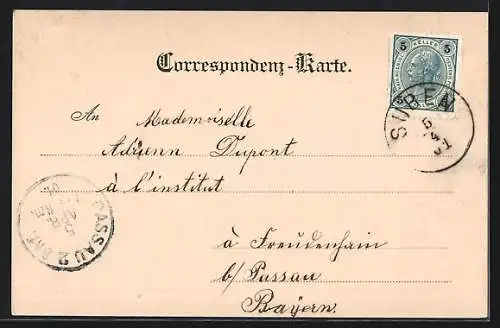 Correspondenz-Karte.
5 HELLER 5
SUBEN
5
4
01
An Mademoiselle
Adrienn Dupont
à l'institut
à Freudenhain
b/ Passau
Bayern.
PASSAU 2 BHF.
5